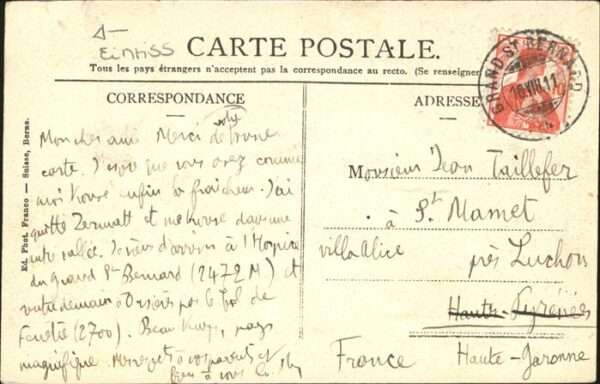 Eintiss
CARTE POSTALE.
Tous les pays étrangers n'acceptent pas la correspondance au recto. (Se renseigner
CORRESPONDANCE
ADRESSE
GRAND ST BERNARD
16.VIII.11
Ed. Phot. Franco — Suisse, Berne.
Mon cher ami Merci de votre
carte. J'espère que vous avez comme
moi trouvé enfin la fraîcheur. J'ai
quitté Zermatt et me trouve dans une
autre vallée. Je viens d'arriver à l'Hospice
du Grand St Bernard (2472 M) et
rentre demain à Orsières par le Col de
Fenêtre (2700). Beau temps, pays
magnifique. Respects à vos parents et
bien à vous
Monsieur Jean Taillefer
à St. Mamet
villa Alice près Luchon
Hautes-Pyrénées
France Haute-Garonne